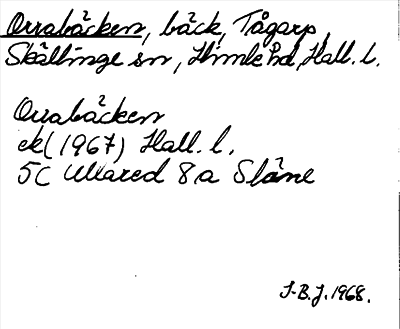 Orrabäcken, bäck, Tågarp,
Skällinge sn, Himle hd, Hall. l.
Orrabäcken
ek (1967) Hall. l.
5C Ullared 8a Släne
J.B.J. 1968.